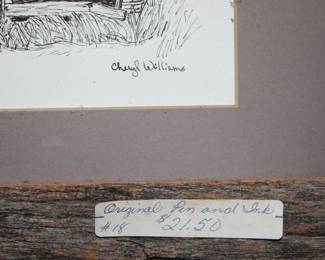 Cheryl Williams
Original Pen and Ink
#18 $21.50